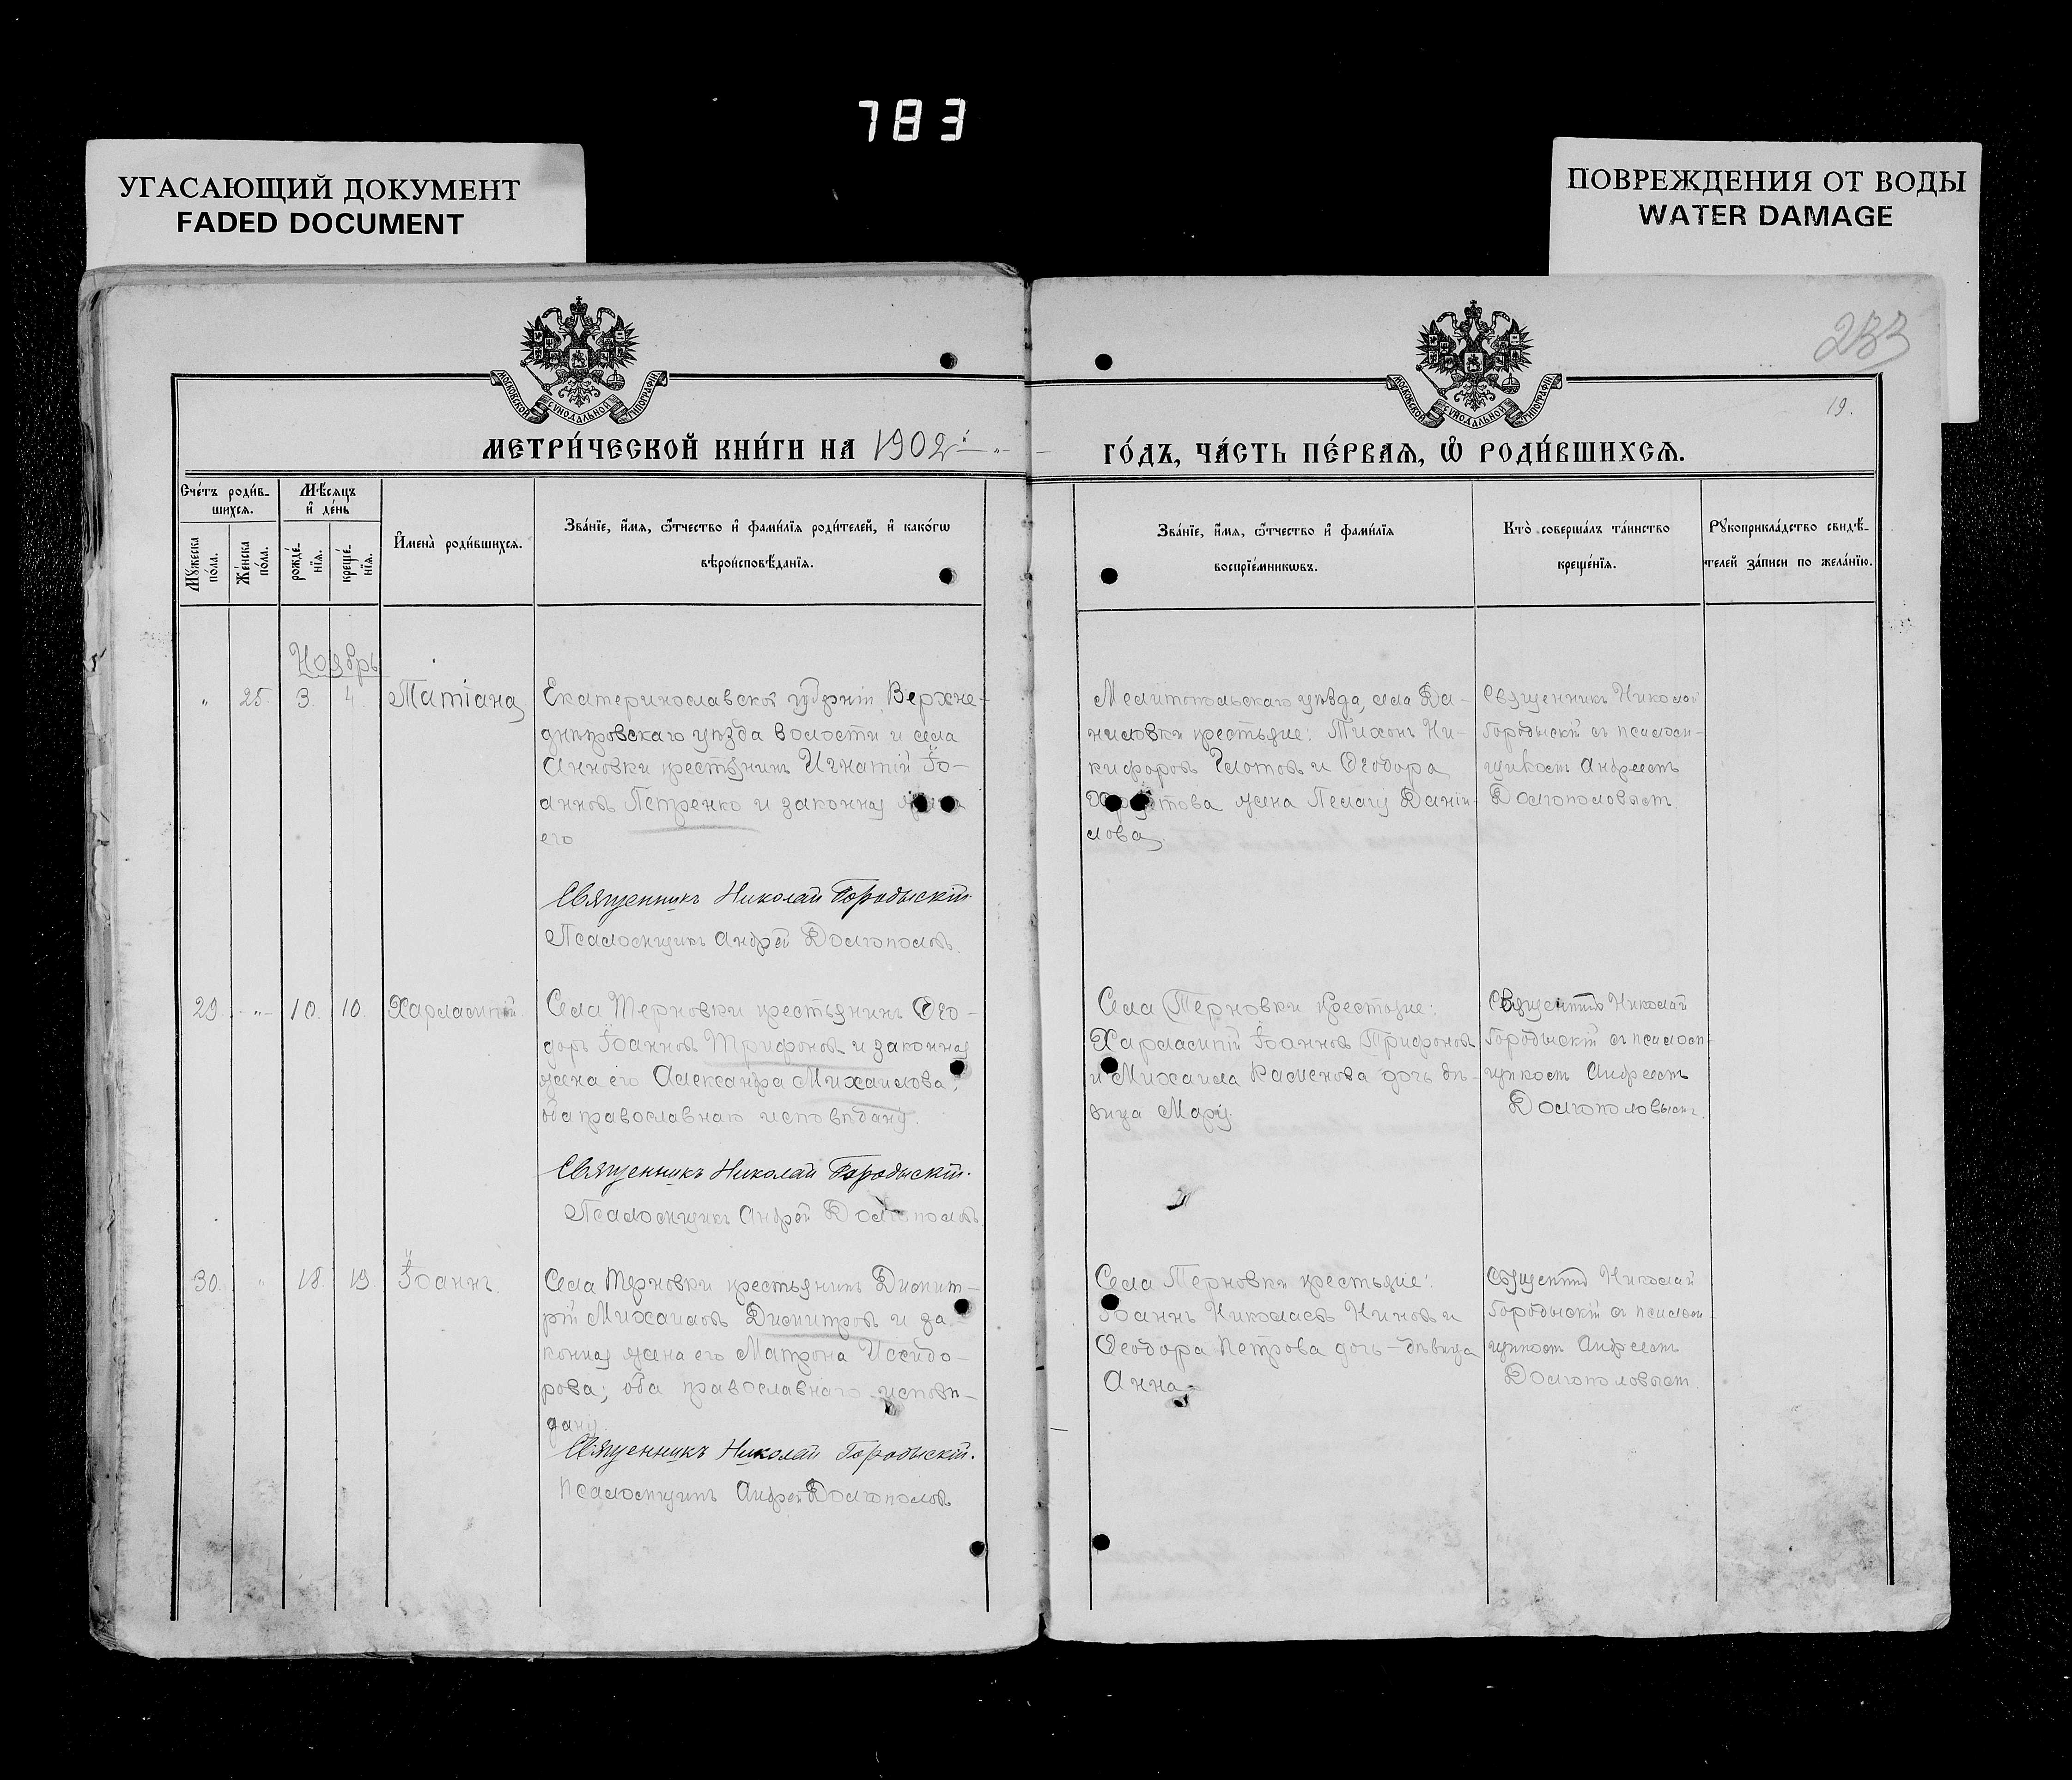 783
УГАСАЮЩИЙ ДОКУМЕНТ
FADED DOCUMENT
ПОВРЕЖДЕНИЯ ОТ ВОДЫ
WATER DAMAGE
233
19.
МОСКОВСКОЙ СѴНОДАЛЬНОЙ ТИПОГРАФІИ
МОСКОВСКОЙ СѴНОДАЛЬНОЙ ТИПОГРАФІИ
МЕТРИ́ЧЕСКОЙ КНИ́ГИ НА 1902
ГО́ДЪ, ЧА́СТЬ ПЕ́РВАЯ, Ѡ҆ РОДИ́ВШИХСѦ.
Сче́тъ роди́в-
шихсѧ.
Мꙋ́жеска
по́ла.
Же́нска
по́ла.
Мѣ́сѧцъ
и҆ де́нь
рожде́-
нїѧ.
креще́-
нїѧ.
И҆мена̀ роди́вшихсѧ.
Зва́нїе, и҆́мѧ, ѻ҆́тчество и҆ фами́лїѧ роди́телей, и҆ како́гѡ
вѣроисповѣ́данїѧ.
Зва́нїе, и҆́мѧ, ѻ҆́тчество и҆ фами́лїѧ
воспрїе́мникѡвъ.
Кто̀ соверша́лъ та́инство
креще́нїѧ.
Рꙋкоприкла́дство свидѣ́-
телей за́писи по жела́нїю.
Ноябрь
" 25. 3. 4. Татіана
Екатеринославской губерніи, Верхне-
днѣпровскаго уѣзда волости и села
Анновки крестьянинъ Игнатій Іо-
анновъ Петренко и законная жена
его
Священникъ Николай Городыскій.
Псаломщикъ Андрей Долгополовъ.
Мелитопольскаго уѣзда, села Да-
ниловки крестьяне: Тихонъ Ни-
кифоровъ Глотовъ и Ѳеодора
жена Пелагія Даніи-
лова.
Священникъ Николай
Городыскій съ псалом-
щикомъ Андреемъ
Долгополовымъ.
29. " 10. 10. Харлампій.
Села Терновки крестьянинъ Ѳео-
доръ Іоанновъ Трифоновъ и законная
жена его Александра Михаилова;
оба православнаго исповѣданія.
Священникъ Николай Городыскій.
Псаломщикъ Андрей Долгополовъ.
Села Терновки крестьяне:
Харлампій Іоанновъ Трифоновъ
и Михаила дочь дѣ-
вица Марія.
Священникъ Николай
Городыскій съ псалом-
щикомъ Андреемъ
Долгополовымъ.
30. " 18. 19. Іоаннъ.
Села Терновки крестьянинъ Димит-
рій Михаиловъ Димитровъ и за-
конная жена его Матрона Исидо-
рова; оба православнаго исповѣ-
данія.
Священникъ Николай Городыскій.
Псаломщикъ Андрей Долгополовъ
Села Терновки крестьяне:
Іоаннъ Николаевъ Ниновъ и
Ѳеодора Петрова дочь – дѣвица
Анна.
Священникъ Николай
Городыскій съ псалом-
щикомъ Андреемъ
Долгополовымъ.